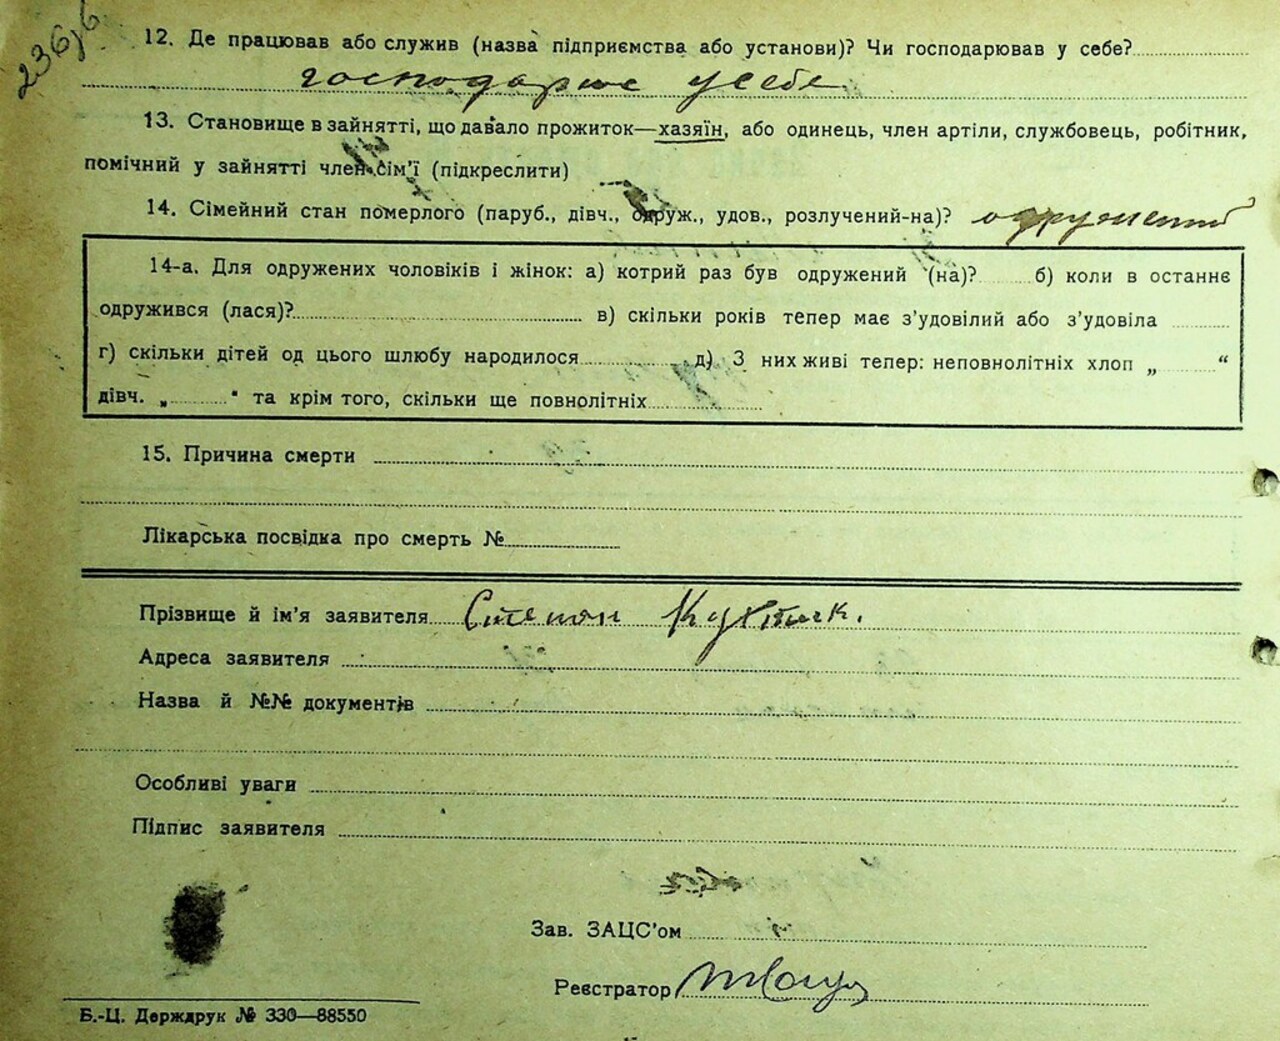 236,б
12. Де працював або служив (назва підприємства або установи)? Чи господарював у себе?
господарює у себе
13. Становище в зайнятті, що давало прожиток—хазяїн, або одинець, член артіли, службовець, робітник,
помічний у зайнятті член сім'ї (підкреслити)
14. Сімейний стан померлого (паруб., дівч., одруж., удов., розлучений-на)? одружений
14-а. Для одружених чоловіків і жінок: а) котрий раз був одружений (на)? б) коли в останнє
одружився (лася)? в) скільки років тепер має з'удовілий або з'удовіла
г) скільки дітей од цього шлюбу народилося д) З них живі тепер: неповнолітніх хлоп „ “
дівч. „ " та крім того, скільки ще повнолітніх
15. Причина смерти
Лікарська посвідка про смерть №
Прізвище й ім'я заявителя Степан
Адреса заявителя
Назва й №№ документів
Особливі уваги
Підпис заявителя
Зав. ЗАЦС'ом
Реєстратор
Б.-Ц. Держдрук № 330—88550